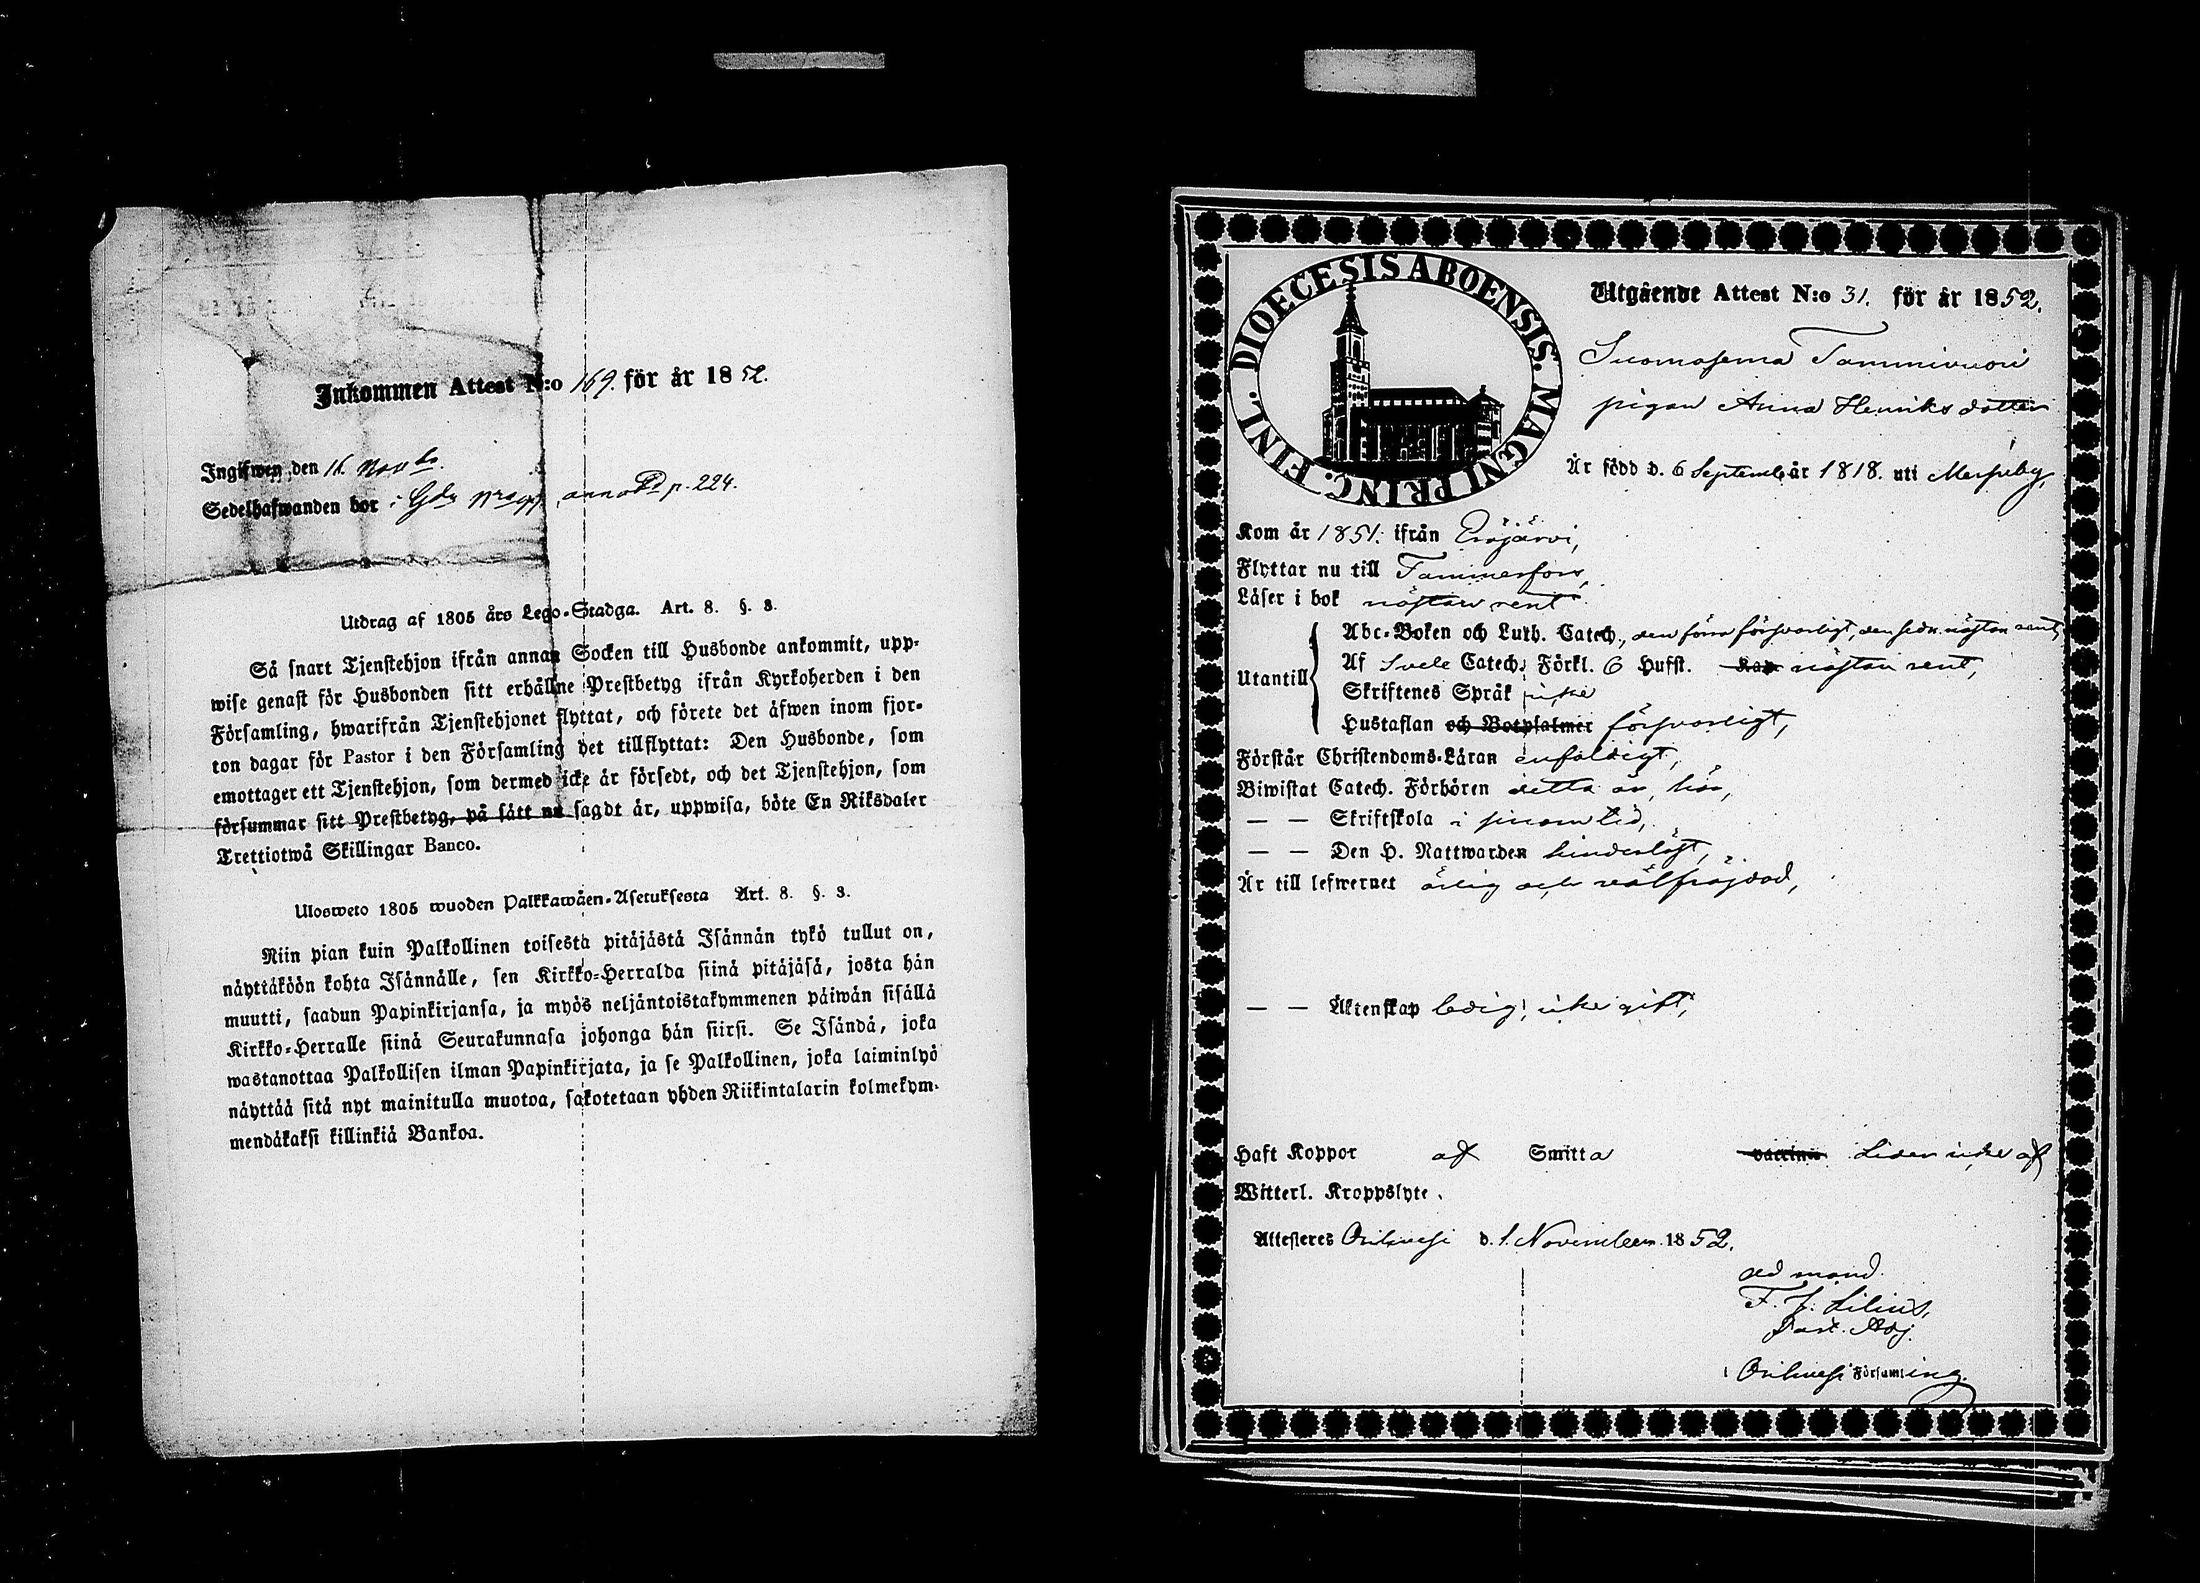 Inkommen Attest N:o 169. för år 1852.
Ingifwen den 16 Novbr.
Sedelhafwanden bor i
p. 224.
Utdrag af 1805 års Lego-Stadga. Art. 8. §. 3.
Så snart Tjenstehjon ifrån annan Socken till Husbonde ankommit, upp-
wise genast för Husbonden sitt erhållne Prestbetyg ifrån Kyrkoherden i den
Församling, hwarifrån Tjenstehjonet flyttat, och förete det äfwen inom fjor-
ton dagar för Pastor i den Församling det tillflyttat: Den Husbonde, som
emottager ett Tjenstehjon, som dermed icke är försedt, och det Tjenstehjon, som
försummar sitt Prestbetyg, på sätt nu sagdt är, uppwisa, böte En Riksdaler
Trettiotwå Skillingar Banco.
Ulosweto 1805 wuoden Palkkawäen-Asetuksesta Art. 8. §. 3.
Niin pian kuin Palkollinen toisesta pitäjästä Isännän tykö tullut on,
näyttäköön kohta Isännälle, sen Kirkko-Herralda siinä pitäjäsä, josta hän
muutti, saadun Papinkirjansa, ja myös neljäntoistakymmenen päiwän sisällä
Kirkko-Herralle siinä Seurakunnasa johonga hän siirsi. Se Isändä, joka
wastanottaa Palkollisen ilman Papinkirjata, ja se Palkollinen, joka laiminlyö
näyttää sitä nyt mainitulla muotoa, sakotetaan yhden Riikintalarin kolmekym-
mendäkaksi killinkiä Bankoa.
FINL. DIOECESIS ABOENSIS. MAGNI PRINC.
Utgående Attest N:o 31. för år 1852.
Suomasema Tammivuori
pigan Anna Henriksdotter
Är född d. 6 Septemb. år 1818. uti Messuby,
Kom år 1851. ifrån Eräjärvi,
Flyttar nu till Tammerfors,
Läser i bok nästan rent
Utantill
Abc-Boken och Luth. Catech., den förra försvarligt, den sedn. nästan rent,
Af Svebe Catech. Förkl. 6 Hufst. Kap. nästan rent,
Skriftenes Språk icke
Hustaflan och Botpsalmer försvarligt,
Förstår Christendoms-Läran enfaldigt,
Biwistat Catech. Förhören detta år, här,
— — Skriftskola i sinom tid,
— — Den H. Nattwarden hinderlöst,
Är till lefwernet ärlig och välfräjdad,
— — Äktenskap ledig, icke gift,
Haft Koppor af Smitta vaccine Lider icke af
Witterl. Kroppslyte.
Attesteres Orihvesi d. 1. November 1852.
ad mand.
F. J. Lilius,
Past. Adj.
i Orihvesi Församling.